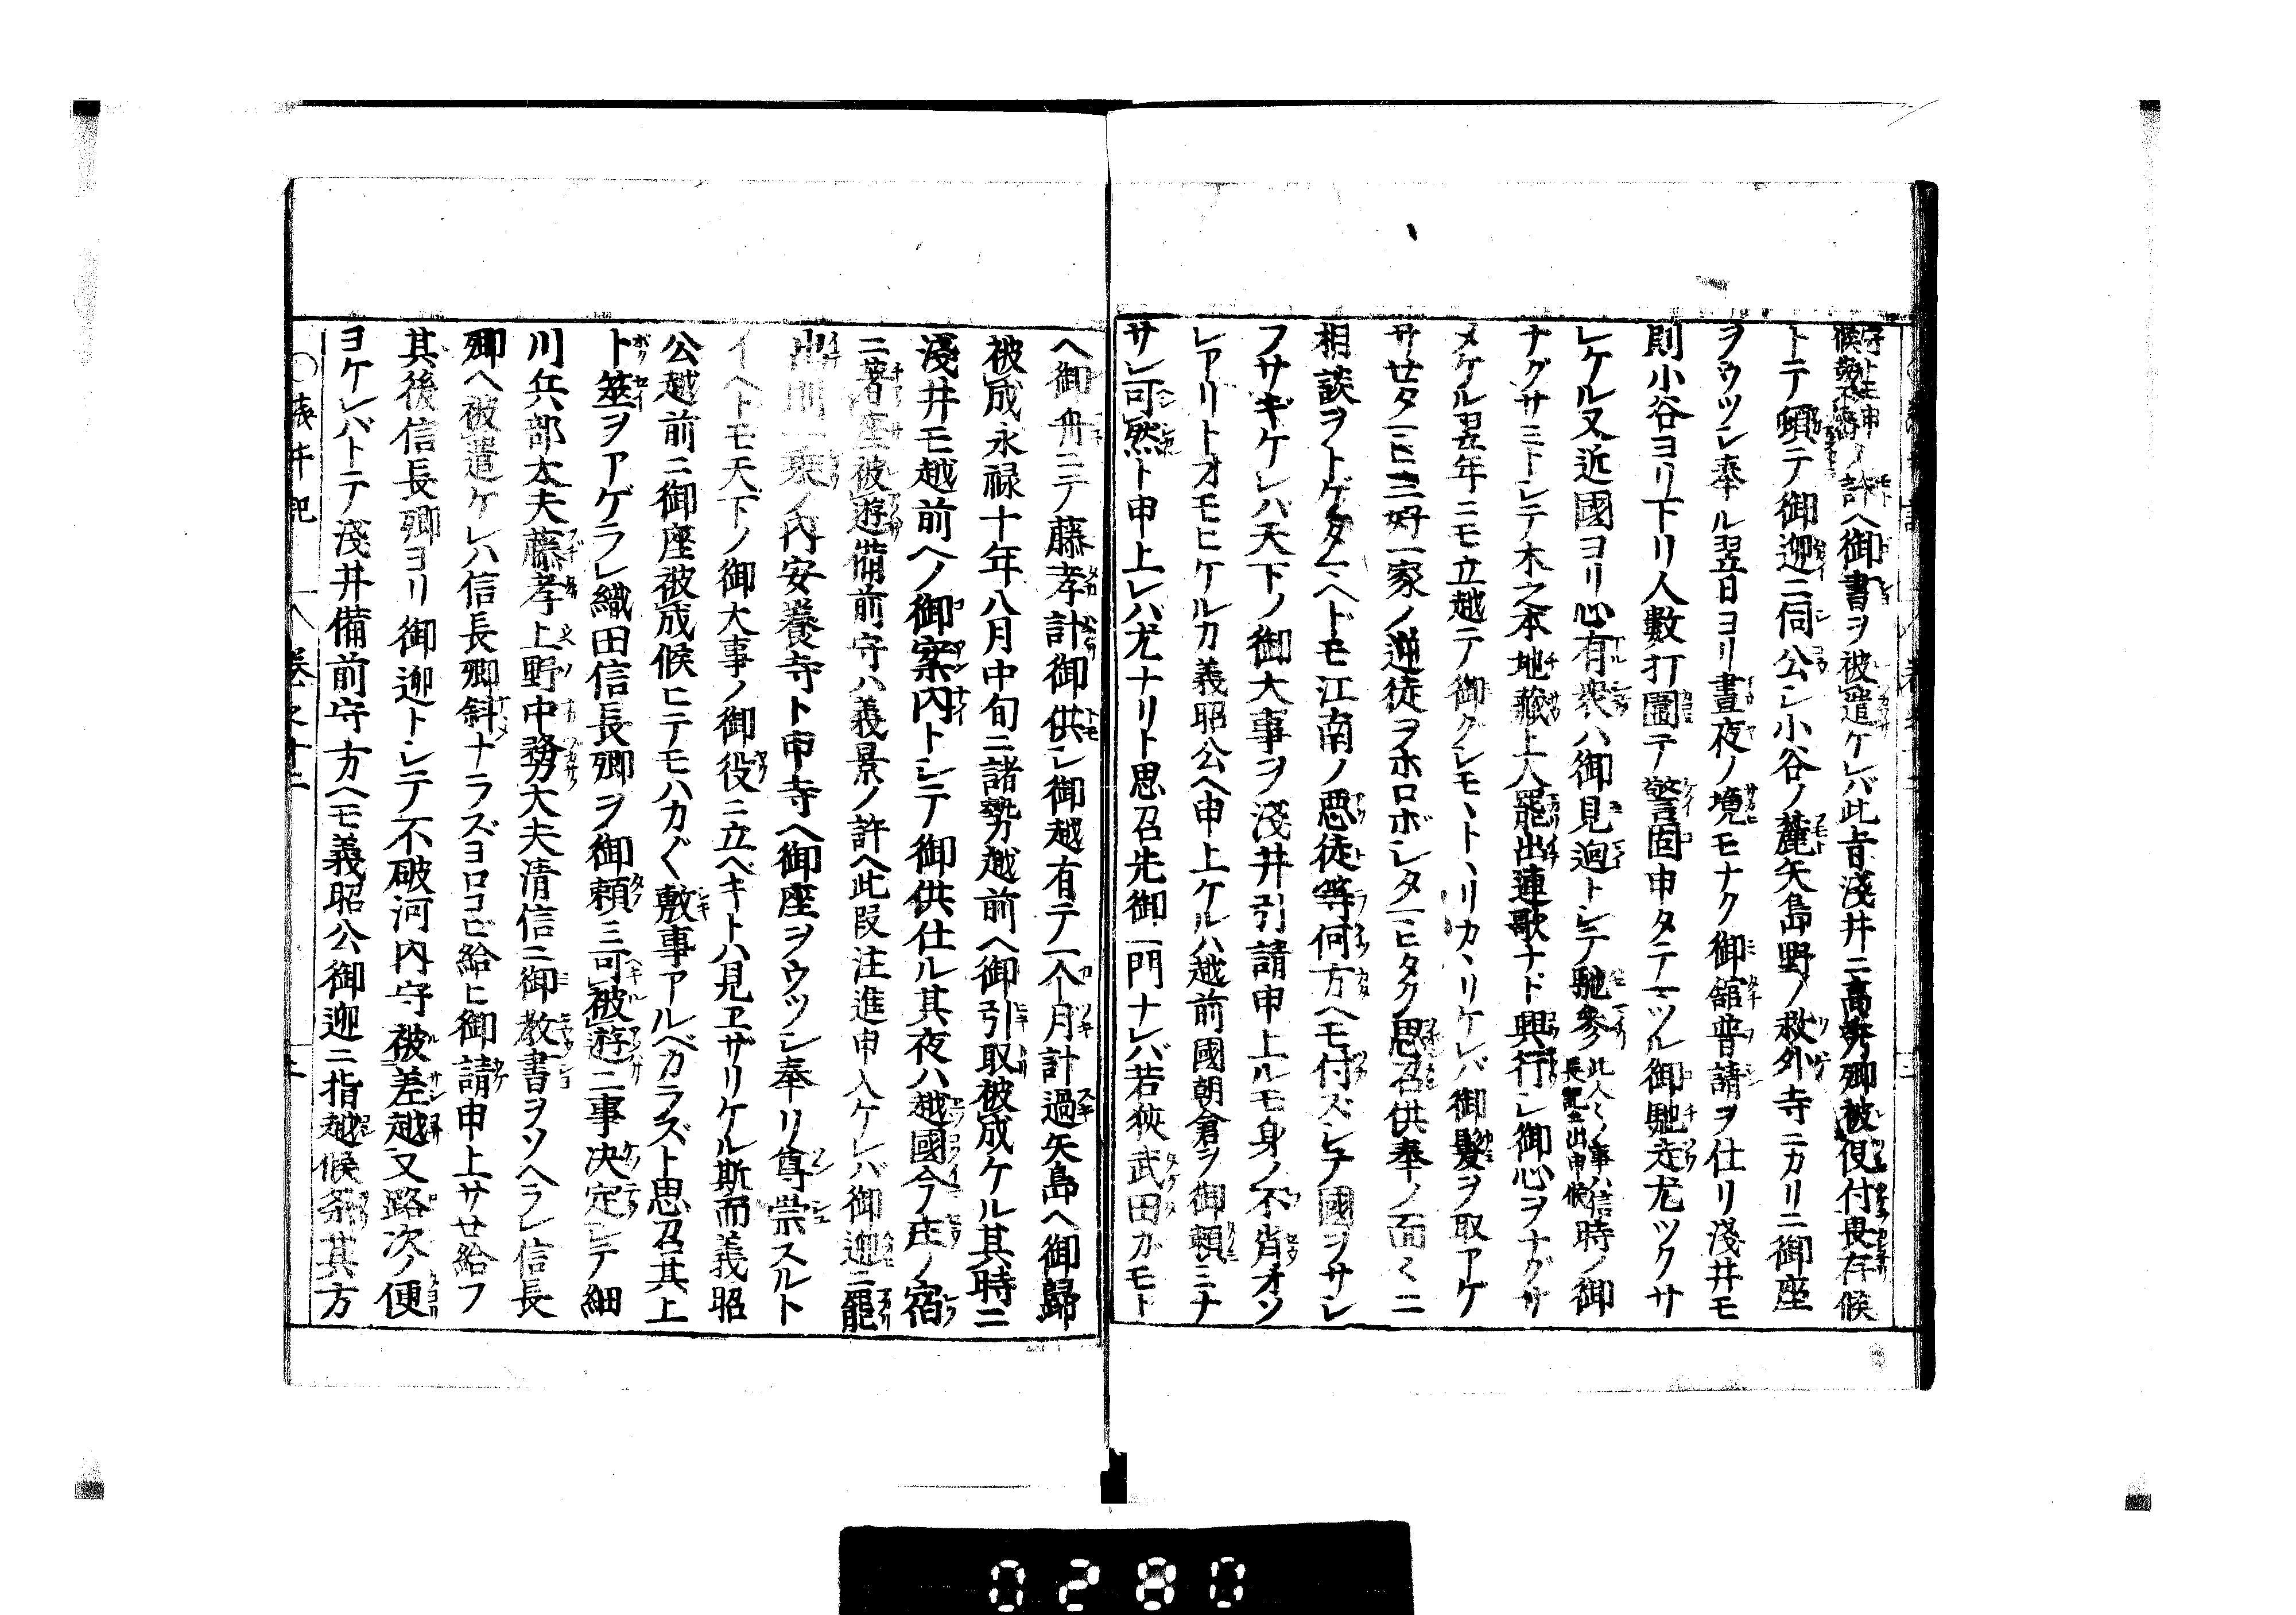 許ヘ御書ヲ被遣ケレバ此旨淺井ニ高秀卿被仰付畏存候
トテ頓テ御迎ニ伺公シ小谷ノ麓矢島野ノ救外寺ニカリニ御座
ヲウツシ奉ル翌日ヨリ晝夜ノ境モナク御舘普請ヲ仕リ淺井モ
則小谷ヨリ下リ人數打圍テ警固申タテマツル御馳走尤ツクサ
レケル又近國ヨリ心有衆ハ御見廻トシテ馳參此人々ノ事ハ信長記ニ出申候時ノ御
ナグサミトシテ木之本地藏上人罷出連歌ナド興行シ御心ヲナグサ
メケル翌年ニモ立越テ御クシモヽトヽリカヽリケレバ御髮ヲ取アゲ
サセタマヒ三好一家ノ逆徒ヲホロボシタマヒタク思召供奉ノ面々ニ
相談ヲトゲタマヘドモ江南ノ惡徒等何方ヘモ付ズシテ國ヲサシ
フサギケレバ天下ノ御大事ヲ淺井引請申上ルモ身ノ不肖オソ
レアリトオモヒケルカ義昭公ヘ申上ケルハ越前國朝倉ヲ御賴ミナ
サレ可然ト申上レバ尤ナリト思召先御一門ナレバ若狹武田ガモト
ヘ御舟ニテ藤孝計御供シ御越有テ一个月計過矢島ヘ御歸
被成永禄十年八月中旬ニ諸勢越前ヘ御引取被成ケル其時ニ
淺井モ越前ヘノ御案内トシテ御供仕ル其夜ハ越國今庄ノ宿
ニ著座被遊備前守ハ義景ノ許ヘ此段注進申入ケレバ御迎ニ罷
出則一乘ノ内安養寺ト申寺ヘ御座ヲウツシ奉リ尊崇スルト
イヘトモ天下ノ御大事ノ御役ニ立ヘキトハ見ヱザリケル斯而義昭
公越前ニ御座被成候ヒテモハカ〲敷事アルベカラズト思召其上
ト筮ヲアゲラレ織田信長卿ヲ御賴ミ可被遊ニ事決定シテ細
川兵部太夫藤孝上野中務大夫清信ニ御教書ヲソヘラレ信長
卿ヘ被遣ケレハ信長卿斜ナラズヨロコビ給ヒ御請申上サセ給フ
其後信長卿ヨリ御迎トシテ不破河内守被差越又路次ノ便
ヨケレバトテ淺井備前守方ヘモ義昭公御迎ニ指越候条其方
井記 卷之十二